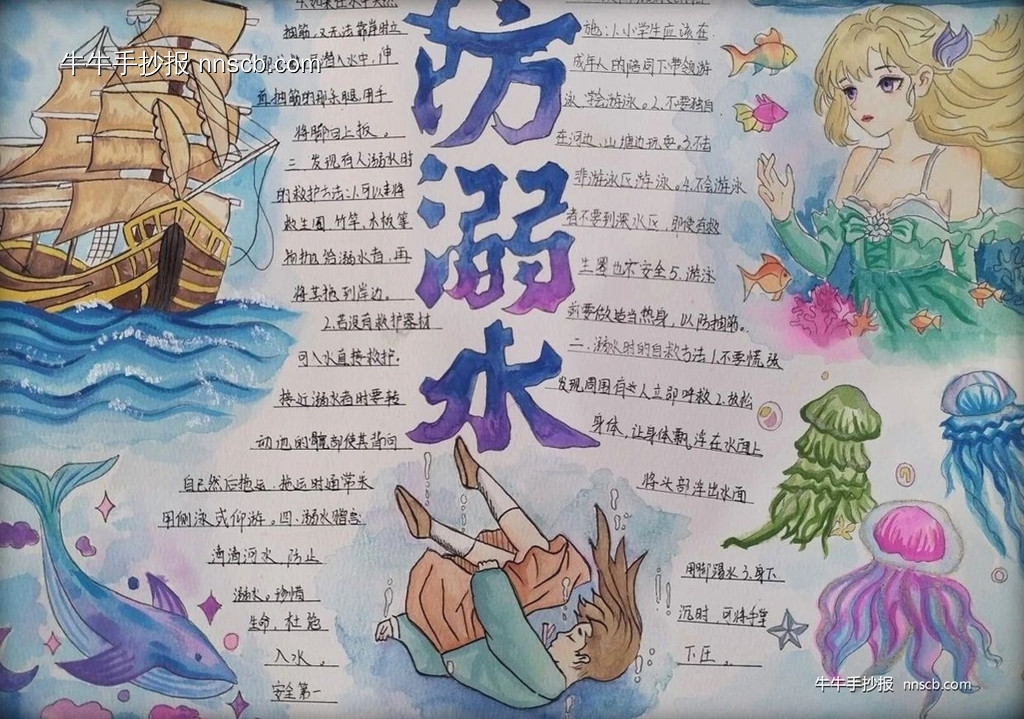 防溺水
牛牛手抄报 nnscb.com
施:1.小学生应该在
成年人的陪同下带领游
泳,学会游泳。2.不要独自
在河边、山塘边玩耍。3.不去
非游泳区游泳。4.不会游泳
者不要到深水区,即使有救
生圈也不安全5.游泳
前要做适当热身,以防抽筋。
二、溺水时的自救方法1.不要慌张
发现周围有人立即呼救2.放松
身体,让身体飘浮在水面上
将头部浮出水面
用脚踢水3.身下
沉时,可将手掌
下压。
4.如果在水中突然
抽筋,又无法靠岸时立
潜入水中,伸
直抽筋的那条腿,用手
将脚回上扳。
三、发现有人溺水时
的救护方法:1.可以将
救生圈、竹竿、木板等
物抛给溺水者,再
将其拖到岸边。
2.若没有救护器材
可入水直接救护.
接近溺水者时要转
动他的髋部使其背向
自己然后拖运.拖运时通常采
用侧泳式仰游。四.溺水警言
滴滴河水,防止
溺水。珍惜
生命,杜绝
入水。
安全第一
牛牛手抄报 nnscb.com